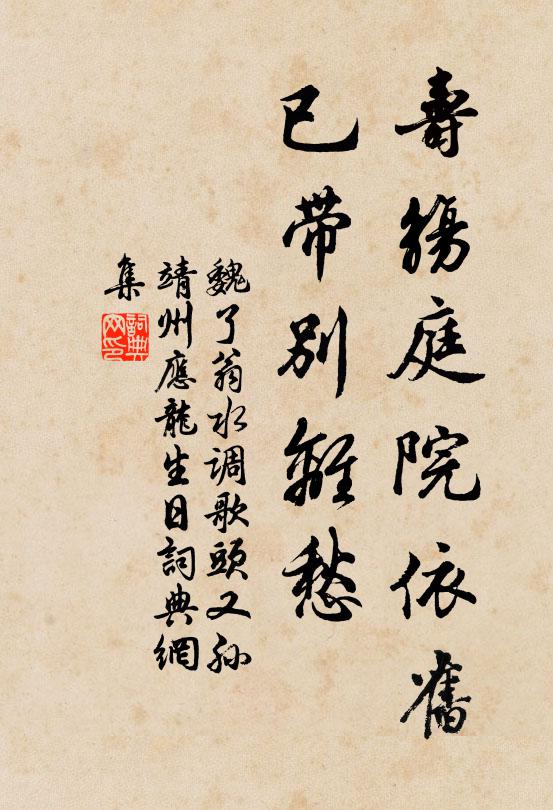 壽觴庭院依舊
已带別離愁
魏了翁水调歌頭又孫
靖州應龍生日詞典網
集
詞典
网印